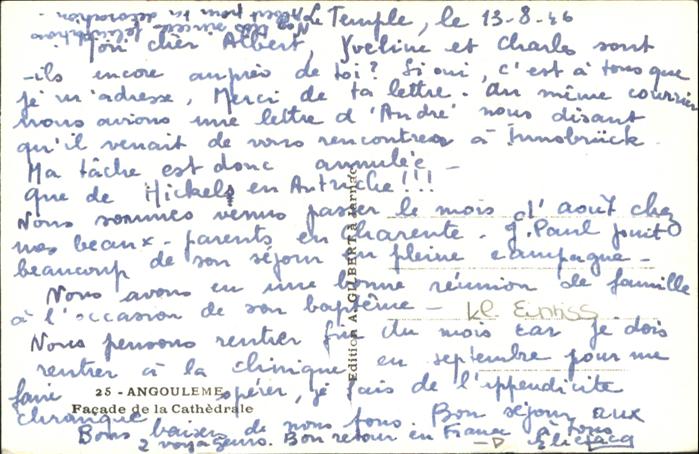 Le Temple, le 13-8-46
Mon cher Albert, Yveline et Charles sont
-ils encore auprès de toi ? Si oui, c'est à tous que
je m'adresse, Merci de ta lettre. Au même courrier
nous avions une lettre d'André nous disant
qu'il venait de vous rencontrer à Innsbrück.
Ma tâche est donc annulée -
que de Mickels en Autriche !!!
Nous sommes venus passer le mois d'août chez
mes beaux-parents en Charente. J. Paul jouit
beaucoup de son séjour en pleine campagne -
Nous avons eu une bonne réunion de famille
à l'occasion de son baptême -
Nous pensons rentrer fin du mois car je dois
rentrer à la clinique en septembre pour me
faire opérer, je fais de l'appendicite
chronique
Bons baisers de nous tous. Bon séjour aux
2 voyageurs. Bon retour en France à tous
Nos plus sincères félicitations
à Albert pour ta décoration
25 - ANGOULEME
Façade de la Cathèdrale
Edition A. GILBERT, à Jarnac